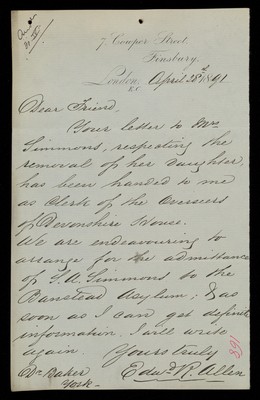 7, Cowper Street.
Finsbury.
London,
E.C.
April 28th 1891
Dear Friend,
Your letter to Mrs
Simmons, respecting the
removal of her daughter,
has been handed to me
as Clerk of the Overseers
of Devonshire House.
We are endeavouring to
arrange for the admittance
of T. A. Simmons to the
Banstead Asylum; & as
soon as I can get definite
information I will write
again. Yours truly
Dr Baker
York
Edwd R. Allen